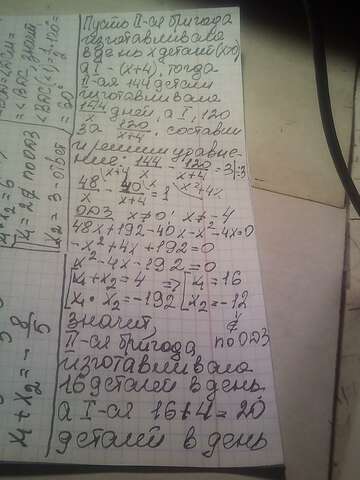 Пусть II-ая бригада
изготавливала
в день x деталей (x>0)
а I - (x+4), тогда
II-ая 144 детали
изготавливала
144/x дней, а I, 120
за 120/(x+4), составим
и решим уравне-
ние: 144/x - 120/(x+4) = 3 |:3
48/x - 40/(x+4) = 1
ОДЗ x≠0; x≠-4
48x+192-40x-x²-4x=0
-x²+4x+192=0
x²-4x-192=0
x₁+x₂=4 => x₁=16
x₁·x₂=-192 x₂=-12
∉ по ОДЗ
Значит,
II-ая бригада
изготавливала
16 деталей в день
а I-ая 16+4=20
деталей в день
x₁+x₂=-8/5
x₂=3-ответ